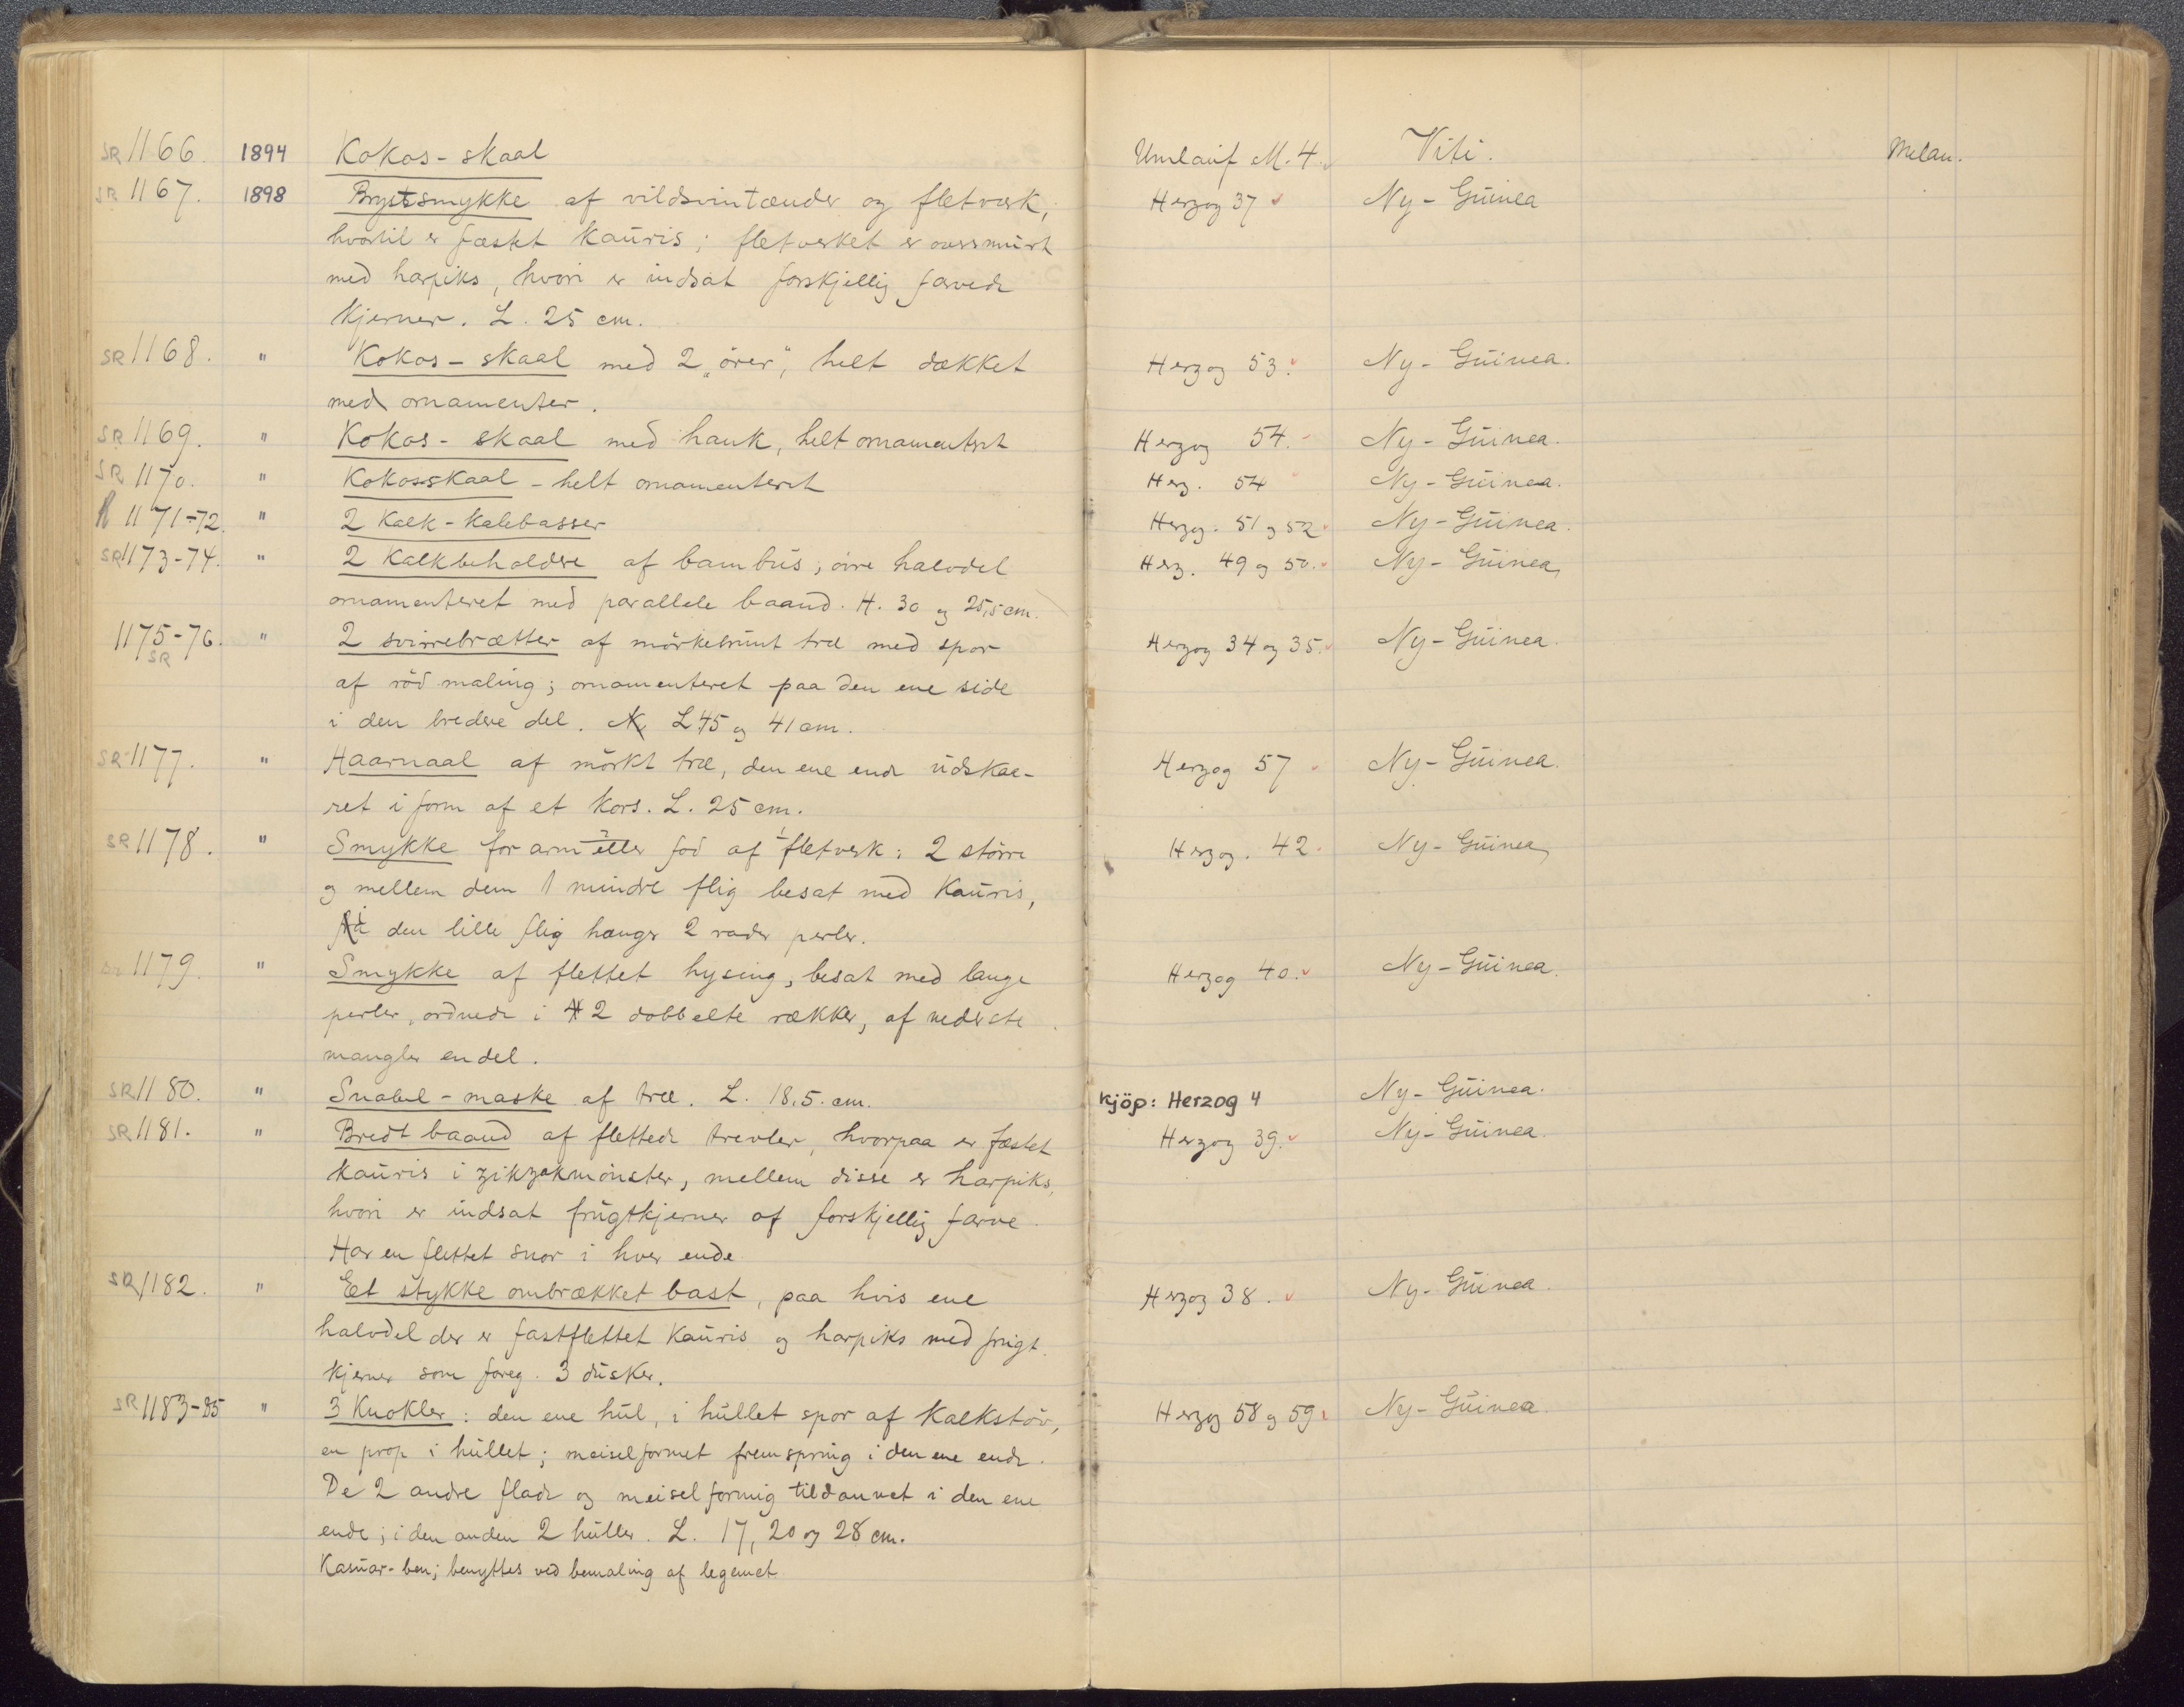 SR 1166. 1894 Kokos-skaal Umlauf M. 4. Viti. Melan.
SR 1167. 1898 Brystsmykke af vildsvintænder og fletverk, Herzog 37 Ny-Guinea
hvortil er fæstet kauris; fletverket er oversmurt
med harpiks, hvori er indsat forskjellig farvede
kjerner. L. 25 cm.
SR 1168. " Kokos-skaal med 2 „örer", helt dækket Herzog 53. Ny-Guinea.
med ornamenter.
SR 1169. " Kokos-skaal med hank, helt ornamentert Herzog 54. Ny-Guinea.
SR 1170. " Kokosskaal - helt ornamenteret Herz. 54 Ny-Guinea.
R 1171-72. " 2 Kalk-kalebasser Herzog. 51 og 52 Ny-Guinea.
SR 1173-74. " 2 Kalkbeholdere af bambus; övre halvdel Herz. 49 og 50. Ny-Guinea,
ornamenteret med parallele baand. H. 30 og 25,5 cm.
1175-76. SR " 2 svirrebrætter af mörkebrunt træ med spor Herzog 34 og 35. Ny-Guinea.
af röd maling; ornamenteret paa den ene side
i den bredere del. L 45 og 41 cm.
SR 1177. " Haarnaal af mörkt træ, den ene ende udskaa- Herzog 57 Ny-Guinea.
ret i form af et kors. L. 25 cm.
SR 1178. " Smykke for arm eller fod af fletverk: 2 större Herzog. 42. Ny-Guinea,
og mellem dem 1 mindre flig besat med Kauris,
i den lille flig hænger 2 rader perler.
SR 1179. " Smykke af flettet hysing, besat med lange Herzog 40. Ny-Guinea.
perler, ordnede i 2 dobbelte rækker, af nederste
mangler en del.
SR 1180. " Snabel-maske af træ. L. 18.5. cm. Kjöp: Herzog 4 Ny-Guinea.
SR 1181. " Bredt baand af flettede trevler, hvorpaa er fæstet Herzog 39. Ny-Guinea.
kauris i zikzakmönster, mellem disse er harpiks,
hvori er indsat frugtkjerner af forskjellig farve.
Har en flettet snor i hver ende
SR 1182. " Et stykke ombrækket bast, paa hvis ene Herzog 38. Ny-Guinea.
halvdel der er fastflettet kauris og harpiks med frugt.
kjerner som foreg. 3 dusker.
SR 1183-85 " 3 Knokler: den ene hul, i hullet spor af kalkstöv, Herzog 58 og 59 Ny-Guinea.
en prop i hullet; meiselformet fremspring i den ene ende.
De 2 andre flade og meiselformig tildannet i den ene
ende; i den anden 2 huller. L. 17, 20 og 28 cm.
Kasuar-ben; benyttes ved bemaling af legemet.